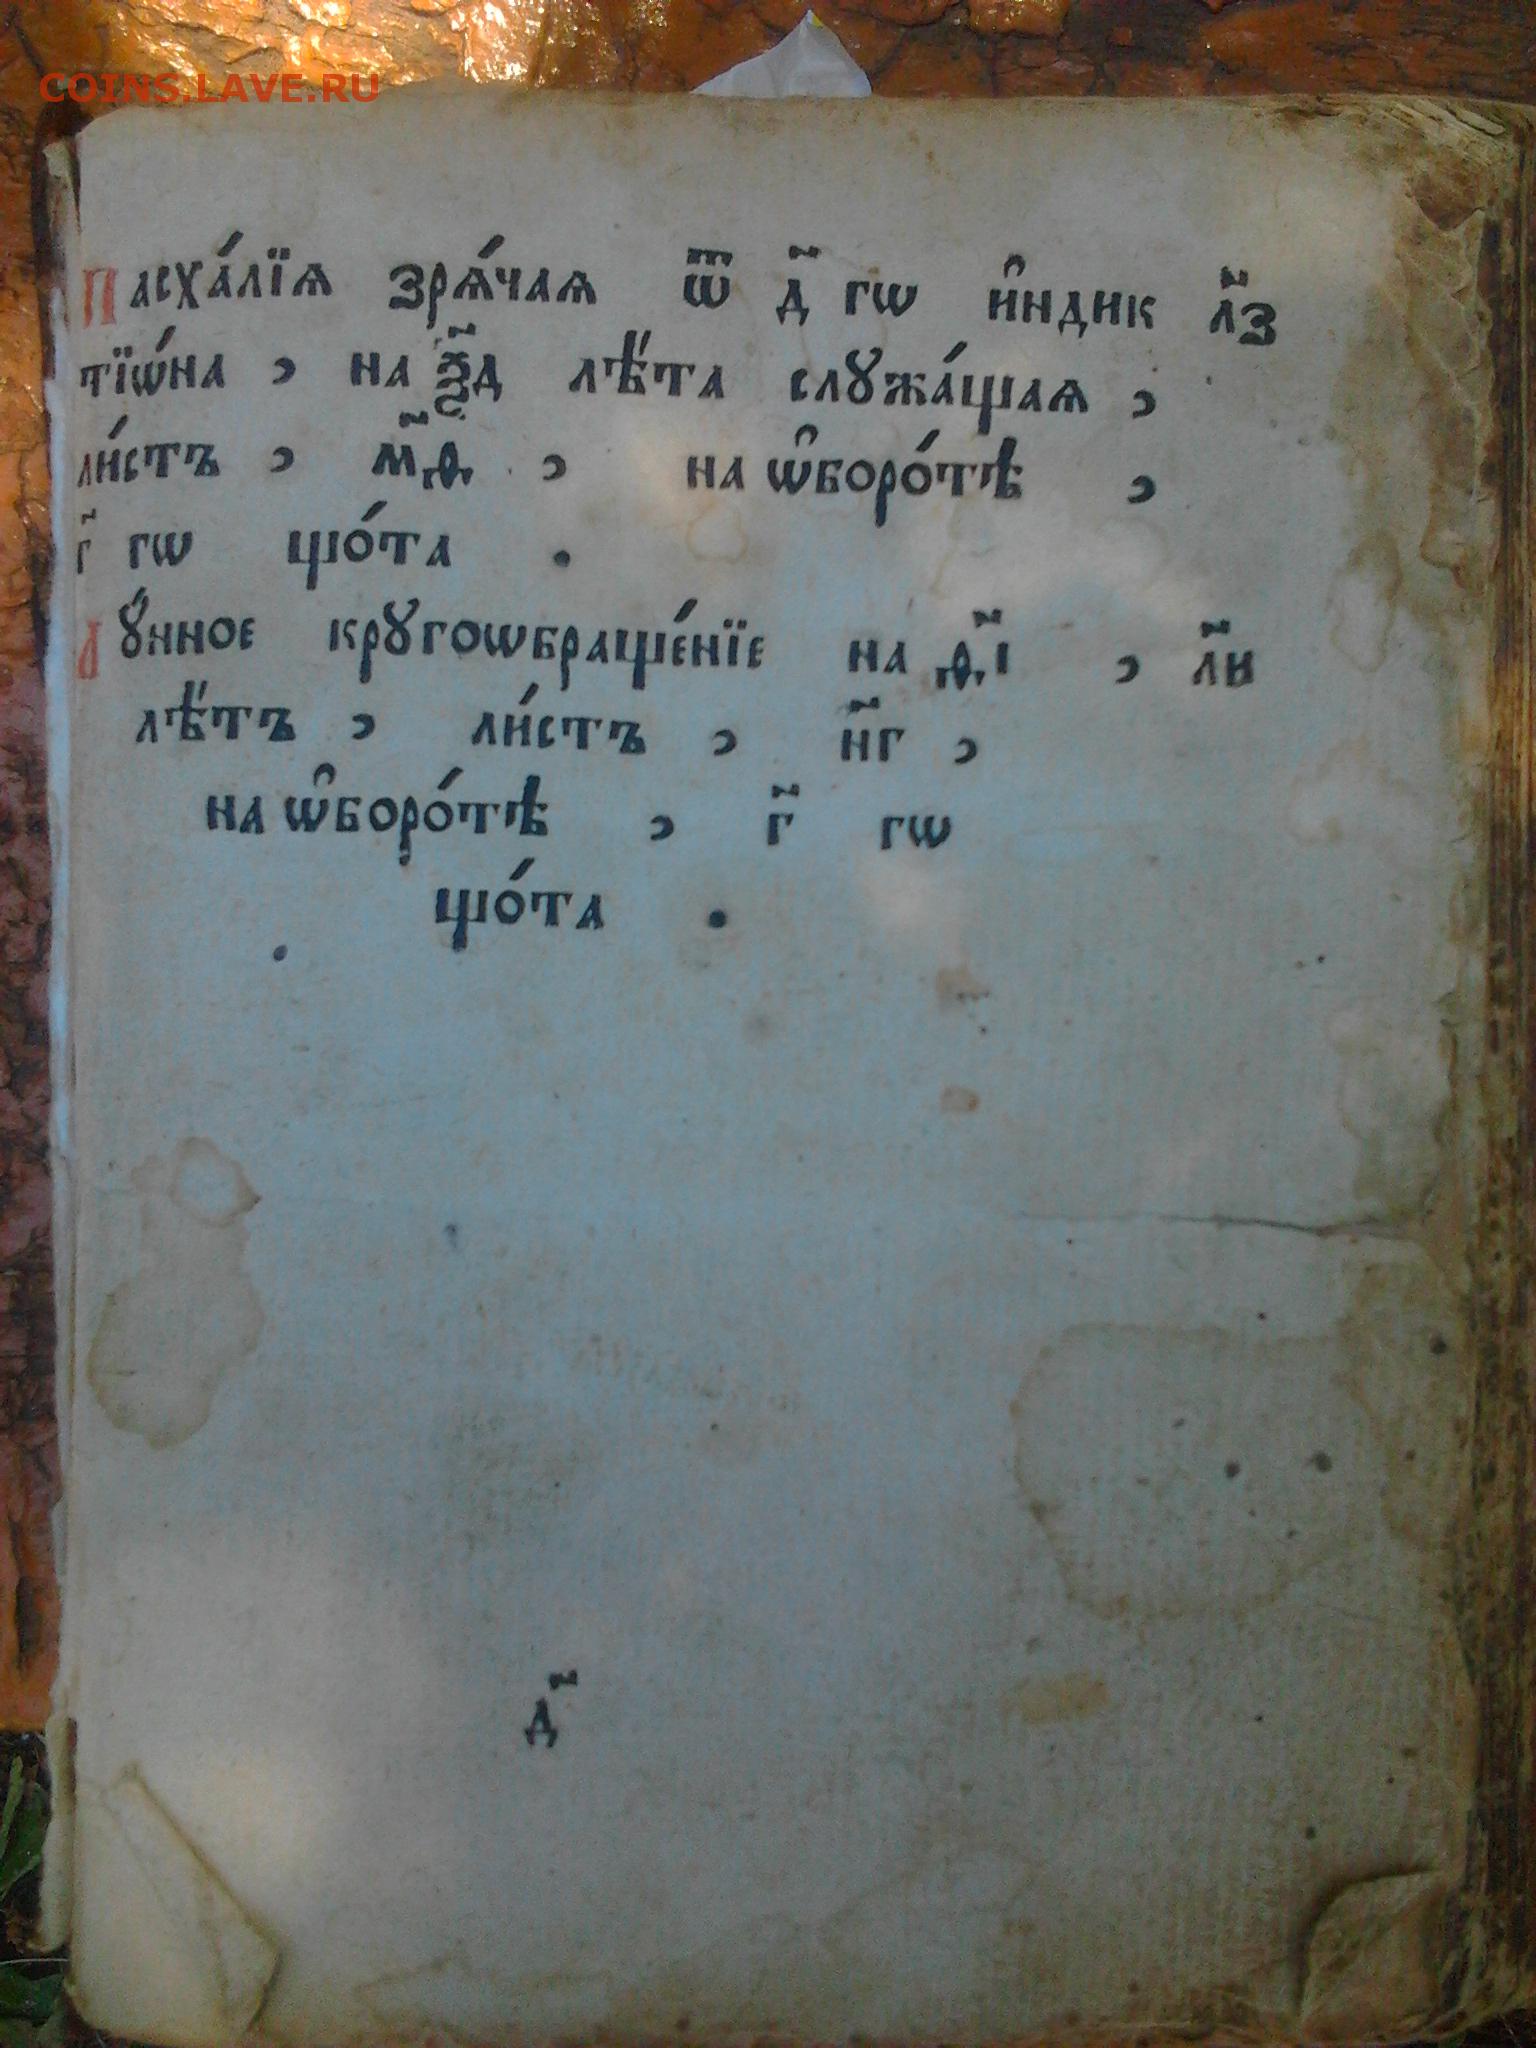 COINS.LAVE.RU
Пасха́лїѧ зрѧ́чаѧ ѿ д҃ гѡ и҆ндик л҃з
тїѡ́на , на ѯ҃д лѣ̈та слꙋжа́щаѧ ,
ли́стъ , м҃ѳ , на ѡ҆боро́тѣ ,
г҃ гѡ що́та .
лꙋ́нное крꙋгоѡбраще́нїе на ѳ҃і , л҃и
лѣ̈тъ , ли́стъ , н҃г ,
на ѡ҆боро́тѣ , г҃ гѡ
що́та .
д҃